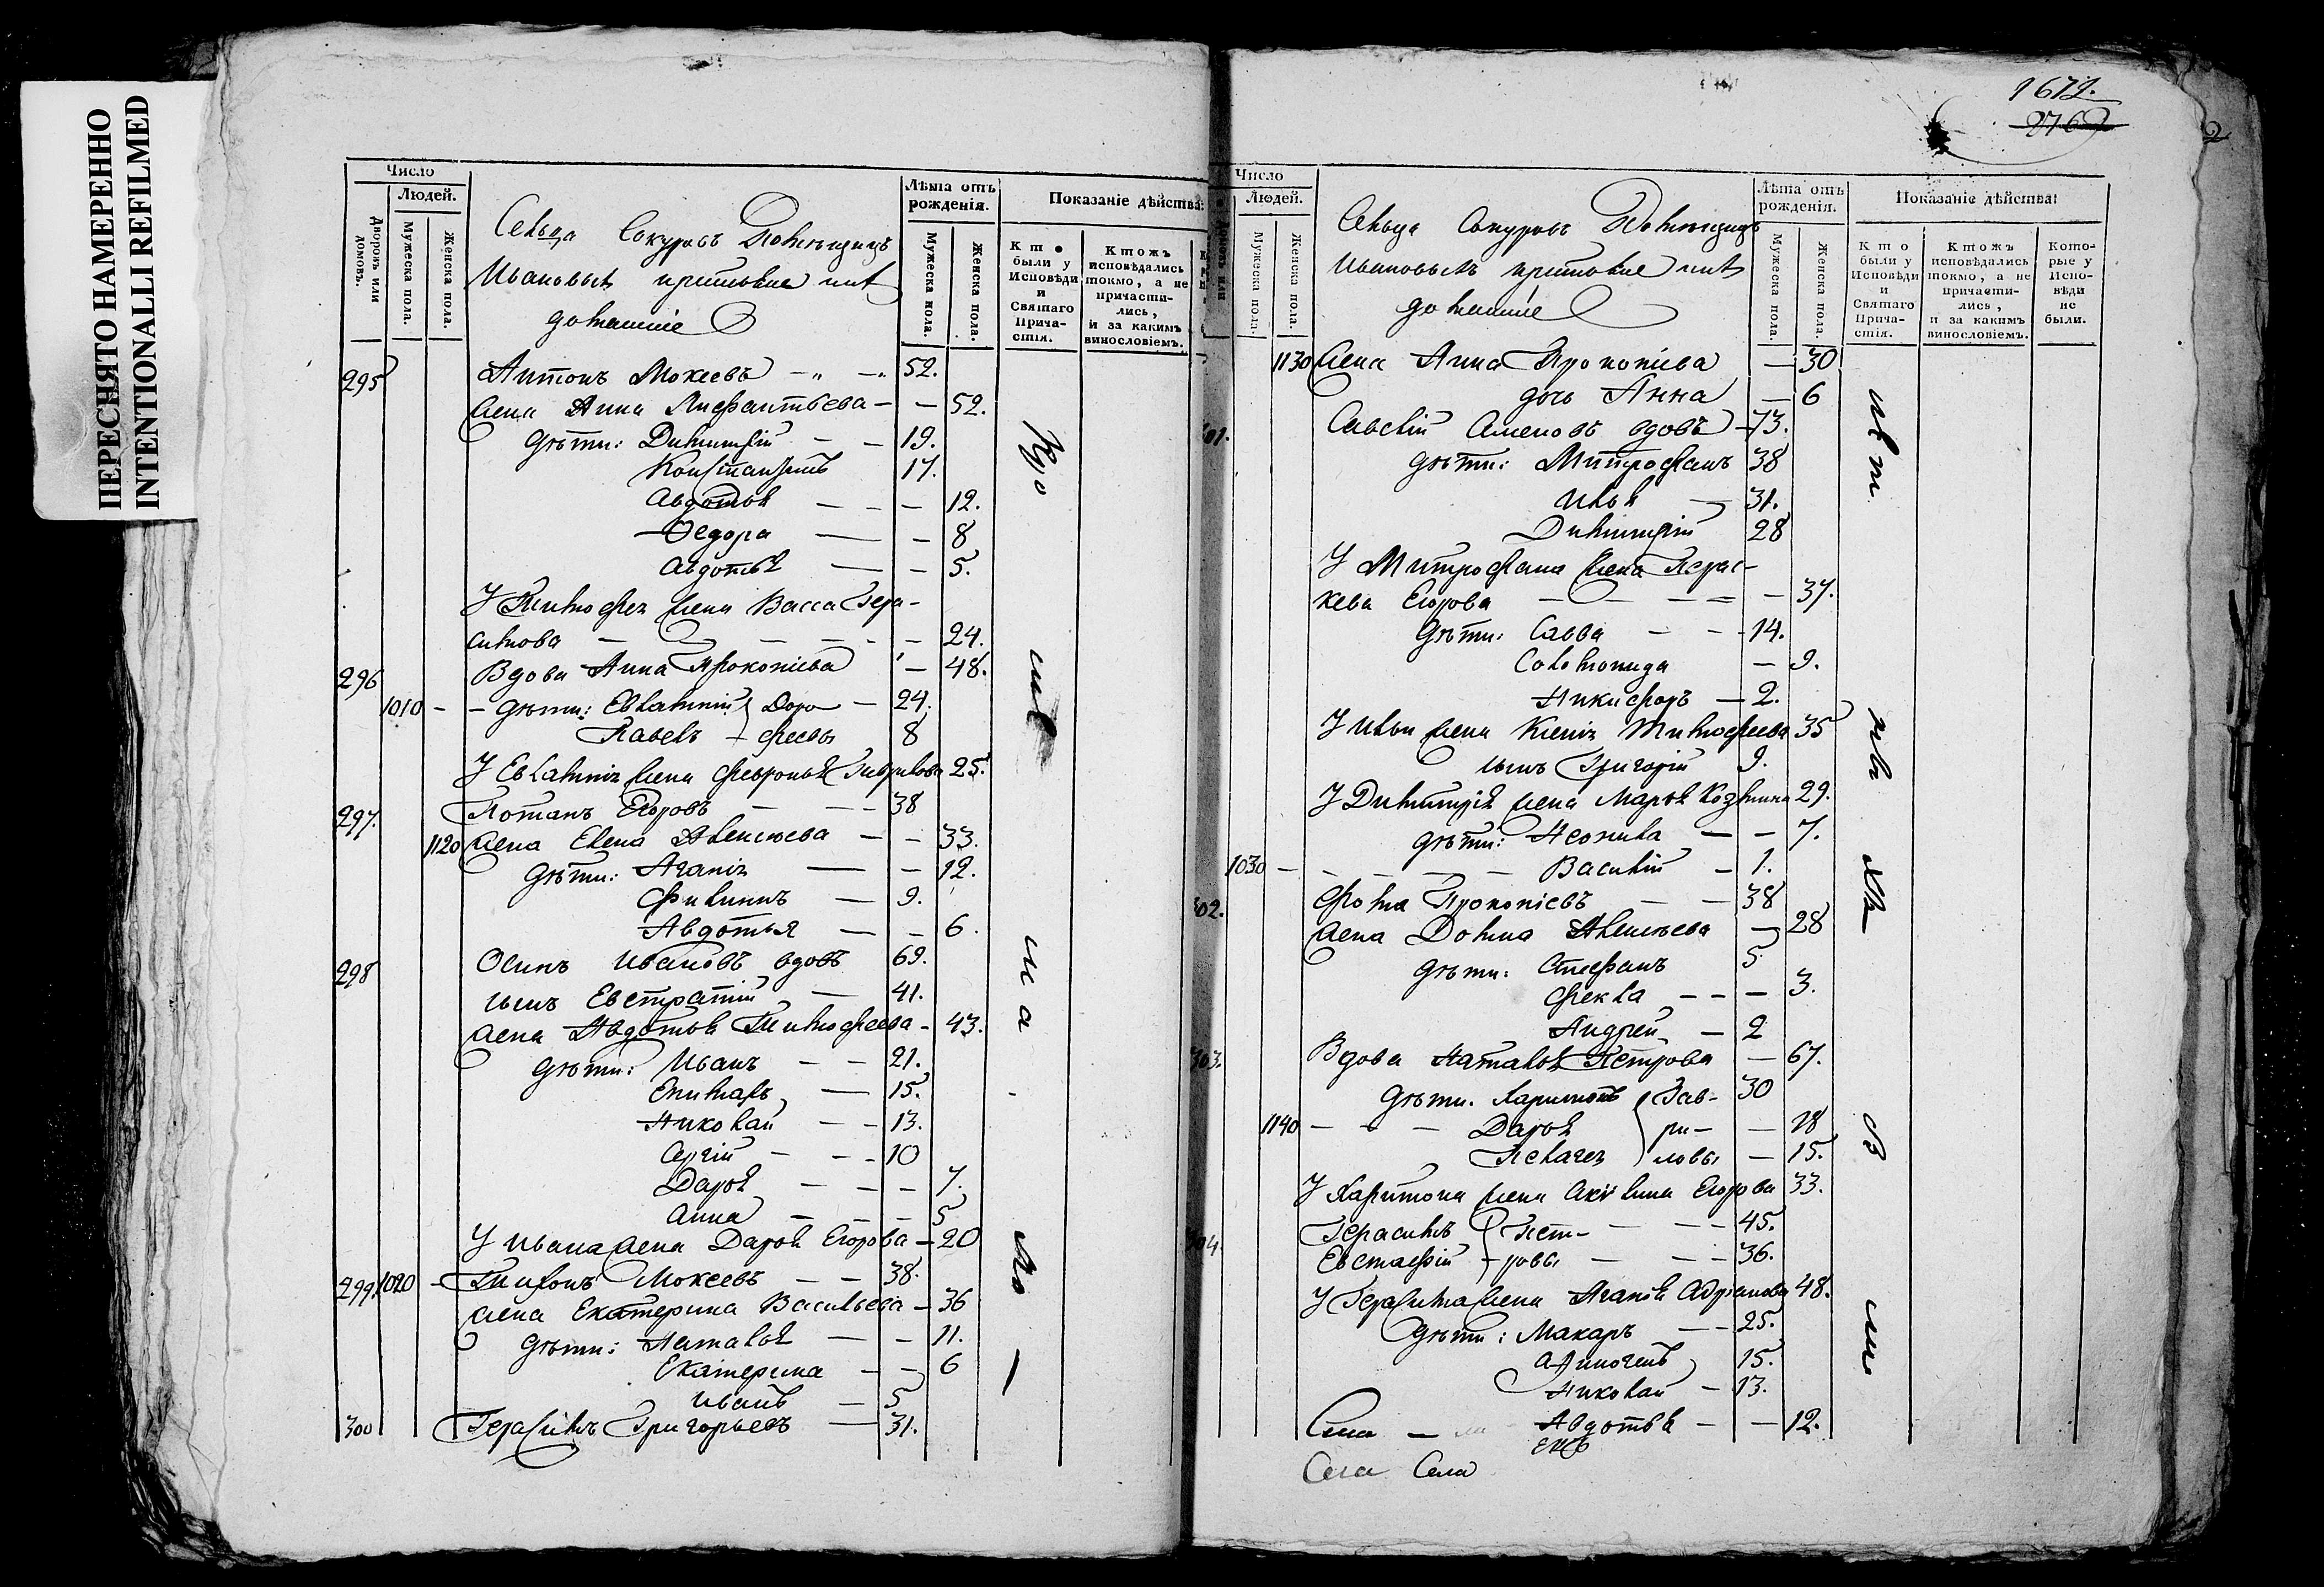 ПЕРЕСНЯТО НАМЕРЕННО
INTENTIONALLI REFILMED
Число
Людей.
Дворовъ или домовъ.
Мужеска пола.
Женска пола.
Лѣта отъ рожденія.
Мужеска пола.
Женска пола.
Показаніе дѣйства:
Кто были у Исповѣди и Святаго Причастія.
Ктожъ исповѣдались токмо, а не причастились, и за какимъ винословіемъ.
Сельца Сокуровъ Помѣщицъ
Ивановыхъ критовые
домашніе
295 Антонъ Мокеевъ 52.
Жена Анна 52.
дѣти: Димитрій 19.
Константинъ 17.
Авдотья 12.
Ѳедора 8
Авдотья 5.
У Тимоѳея жена Васса Гера-
симова 24.
296 Вдова Анна Прокопіева 48.
1010 дѣти: Евлампій Доро 24.
Павелъ феевы 8
У Евлампія жена Февронья Гаврилова 25.
297. Потапъ Егоровъ 38
1120 Жена Елена Алексѣева 33.
дѣти: Агапія 12.
Филиппъ 9.
Авдотья 6.
298 Осипъ Ивановъ вдовъ 69.
сынъ Евстратій 41.
Жена Авдотья Тимофеева 43.
дѣти: Иванъ 21.
Епимахъ 15.
Николай 13.
Сергій 10
Дарья 7.
Анна 5
У Ивана жена Дарья Егорова 20
299 1020 Тихонъ Мокеевъ 38.
Жена Екатерина Васильева 36
дѣти: Наталья 11.
Екатерина 6
Иванъ 5
300 Герасимъ Григорьевъ 31.
1672.
2762
Число
Людей.
Мужеска пола.
Женска пола.
Лѣта отъ рожденія.
Мужеска пола.
Женска пола.
Показаніе дѣйства:
Кто были у Исповѣди и Святаго Причастія.
Ктожъ исповѣдались токмо, а не причастились, и за какимъ винословіемъ.
Которые у Исповѣди не были.
Сельца Сокуровъ Помѣщицъ
Ивановыхъ критовые
домашніе
1130 Жена Анна Прокопіева 30
дочь Анна 6
301. Савелій Семеновъ вдовъ 73.
дѣти: Митрофанъ 38
Илья 31.
Димитрій 28
У Митрофана жена Парас-
кева Егорова 37.
дѣти: Савва 14.
Соломонида 9.
Никифоръ 2.
У Ильи жена Ксенія Тимофеева 35
сынъ Григорій 9.
У Димитрія жена Марья Козмина 29.
дѣти: Неонила 7.
1030 Василій 1.
302. Фома Прокопіевъ 38
Жена Домна Алексѣева 28
дѣти: Стефанъ 5
Фекла 3.
Андрей 2
303. Вдова Наталья Петрова 67.
дѣти. Харитонъ Гав- 30
1140 Дарья ри- 18
Пелагея ловы 15.
У Харитона жена Акилина Егорова 33.
304. Герасимъ Пет- 45.
Евстафій ровы 36.
У Герасима жена Агапія Адріанова 48.
дѣти: Макаръ 25.
Афиногенъ 15.
Николай 13.
Авдотья 12.
Села Села